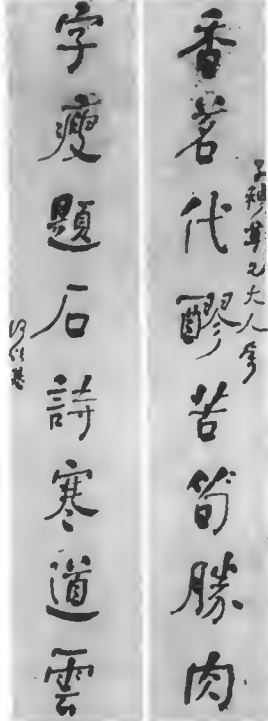 香茗代醪苦筍勝肉
子穆尊兄大人属
字瘦題石詩寒道雲
何紹基